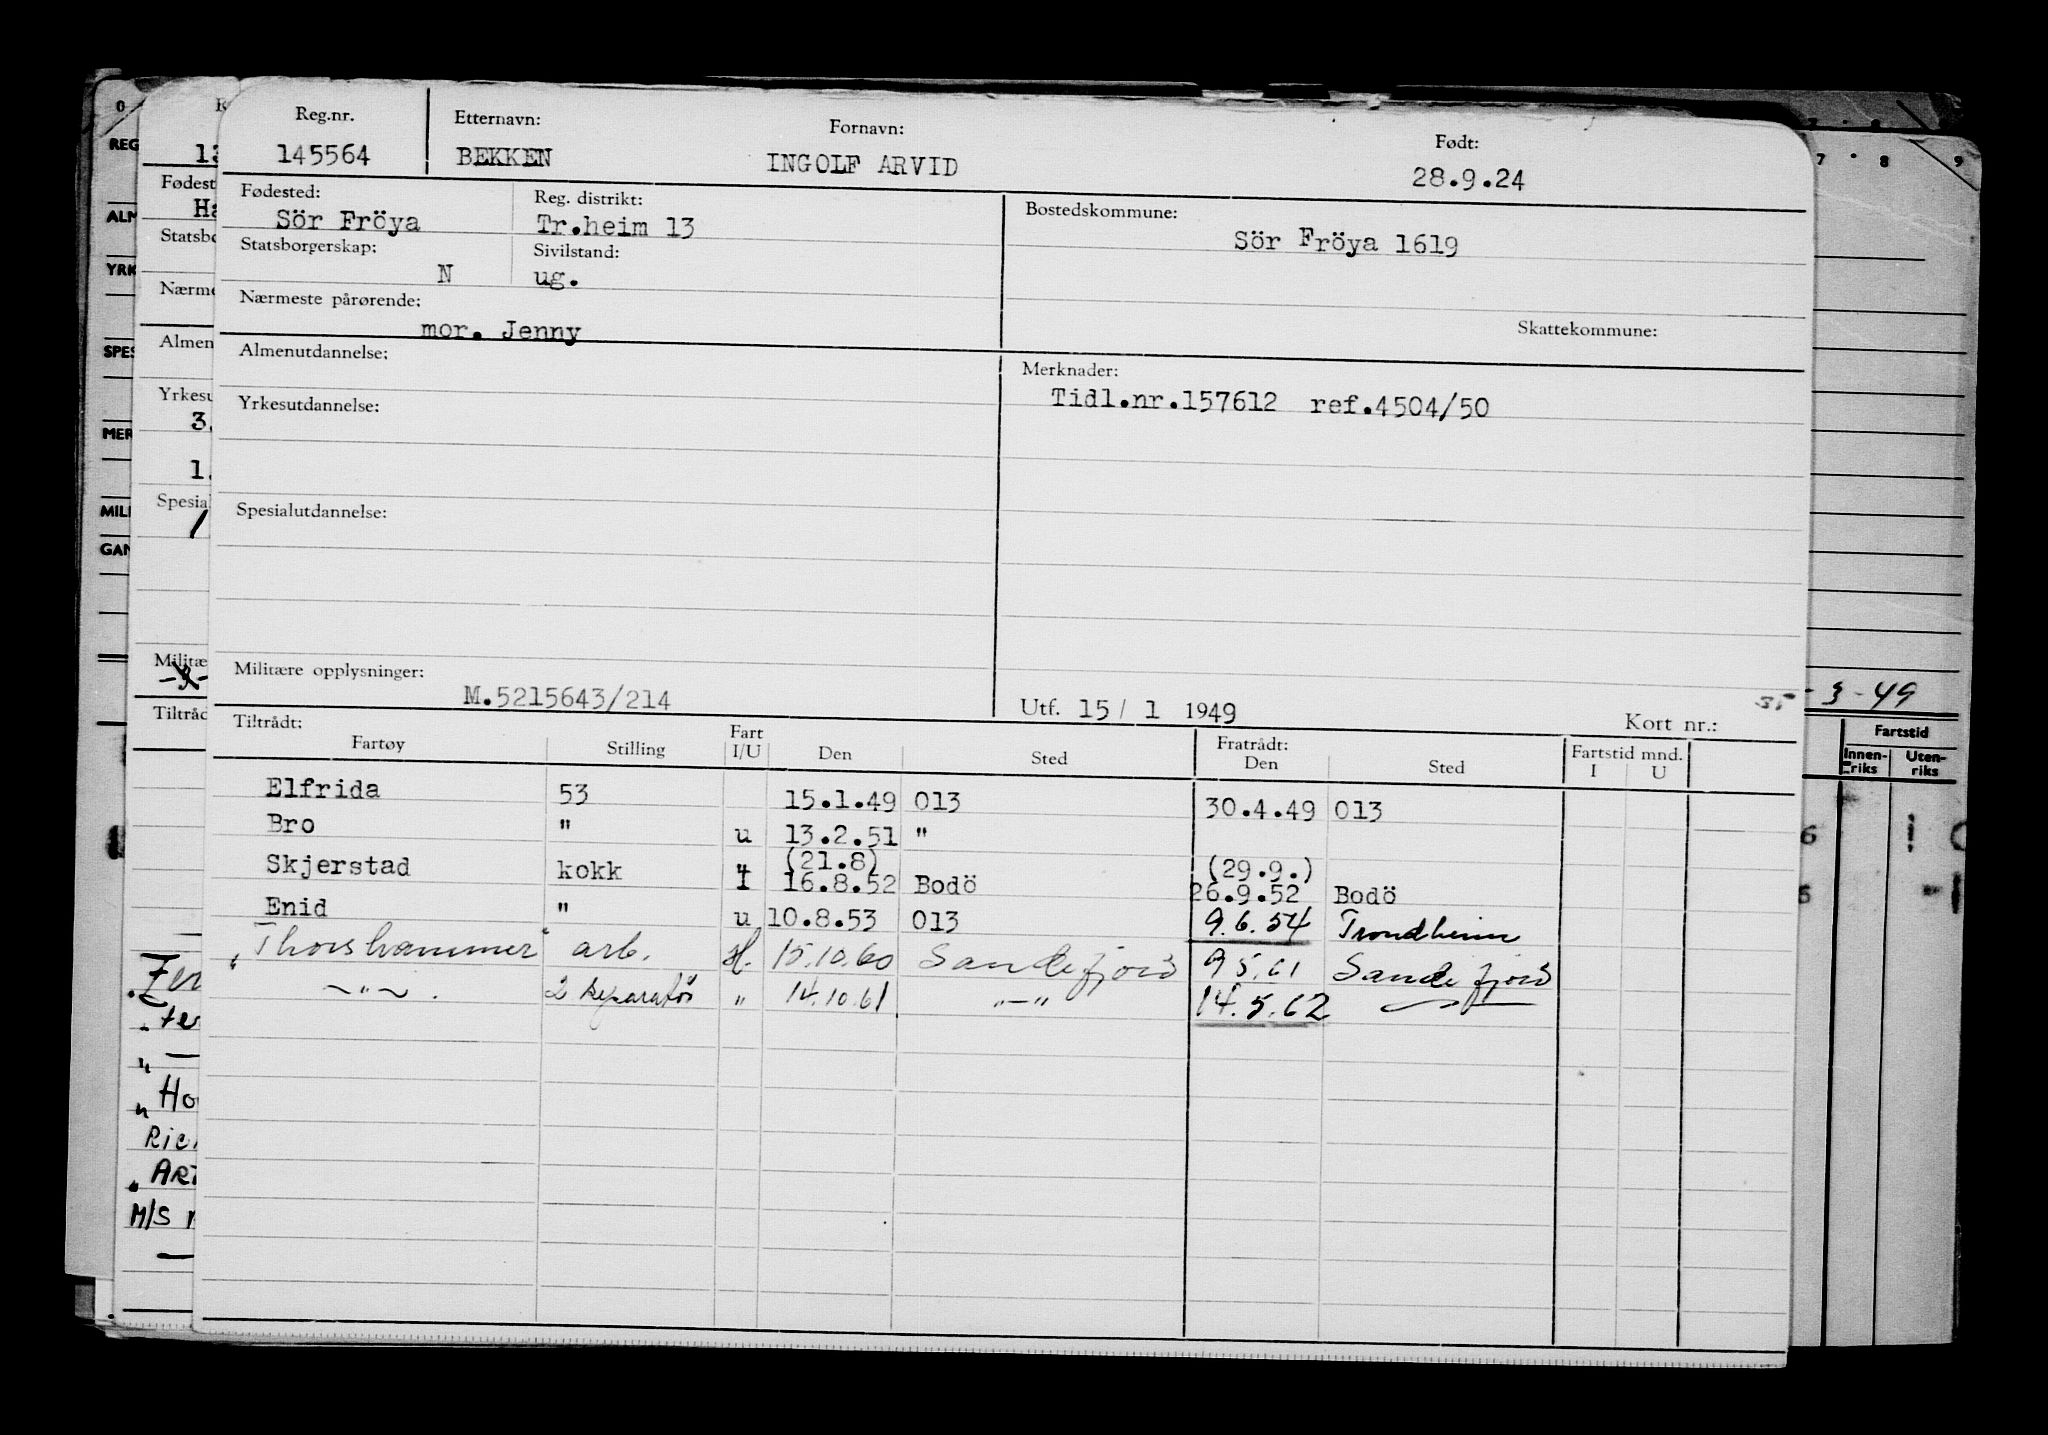 Reg.nr. Etternavn: Fornavn: Født:
145564 BEKKEN INGOLF ARVID 28.9.24
Fødested: Reg. distrikt: Bostedskommune:
Sör Fröya Tr.heim 13 Sör Fröya 1619
Statsborgerskap: Sivilstand:
N ug.
Nærmeste pårørende: Skattekommune:
mor. Jenny
Almenutdannelse: Merknader:
Tidl.nr.157612 ref.4504/50
Yrkesutdannelse:
Spesialutdannelse:
Militære opplysninger:
M.5215643/214 Utf. 15/ 1 1949 Kort nr.:
- 3 - 49
Tiltrådt: Fratrådt: Fartstid mnd.
Fartøy Stilling Fart I/U Den Sted Den Sted I U
Fartstid
Innenriks Utenriks
Elfrida 53 15.1.49 013 30.4.49 013
Bro " u 13.2.51 "
(21.8) (29.9.)
Skjerstad kokk I 16.8.52 Bodö 26.9.52 Bodö
Enid " u 10.8.53 013 9.6.54 Trondheim
"Thorshammer" arb. H. 15.10.60 Sandefjord 9 5.61 Sandefjord
~"~. 2 reparatör " 14.10.61 "—" 14.5.62
REG
ALM
YRK
SPES
MER
MILI
GAN
Fødest
Ha
Statsbo
Nærme
Almen
Yrkesu
3.
1.
Spesial
Militæ
Tiltråd
Ho
ARI
M/S